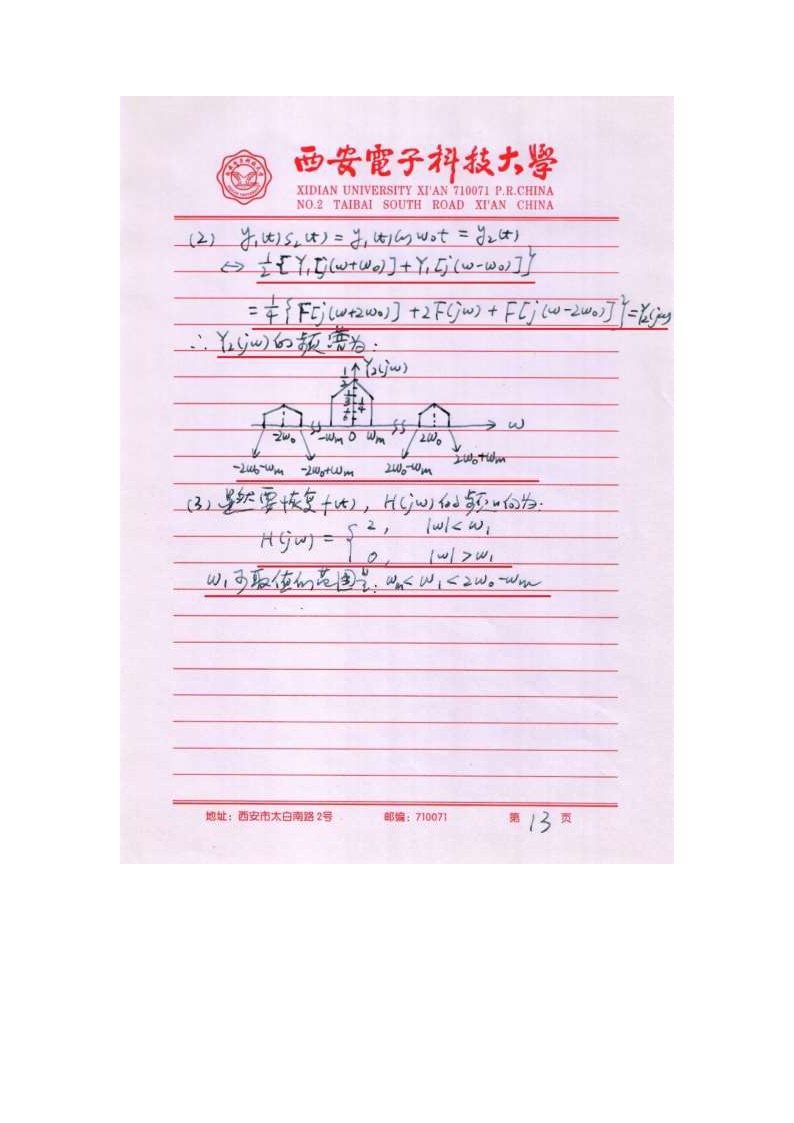 西安電子科技大學
XIDIAN UNIVERSITY XI'AN 710071 P.R.CHINA
NO.2 TAIBAI SOUTH ROAD XI'AN CHINA
(2) y₁(t)s₂(t) = y₁(t)cosω₀t = y₂(t)
↔ ½{Y₁[j(ω+ω₀)]+Y₁[j(ω-ω₀)]}
= ¼{F[j(ω+2ω₀)]+2F(jω)+F[j(ω-2ω₀)]}=Y₂(jω)
∴ Y₂(jω)的频谱为:
Y₂(jω)
½
⅓ ¼
-2ω₀ -ωm 0 ωm 2ω₀ ω
-2ω₀-ωm -2ω₀+ωm 2ω₀-ωm 2ω₀+ωm
(3) 显然要恢复f(t), H(jω)的频响为:
H(jω) = { 2, |ω|<ω₁
0, |ω|>ω₁
ω₁可取值的范围是: ωm<ω₁<2ω₀-ωm
地址：西安市太白南路2号 邮编：710071 第 13 页